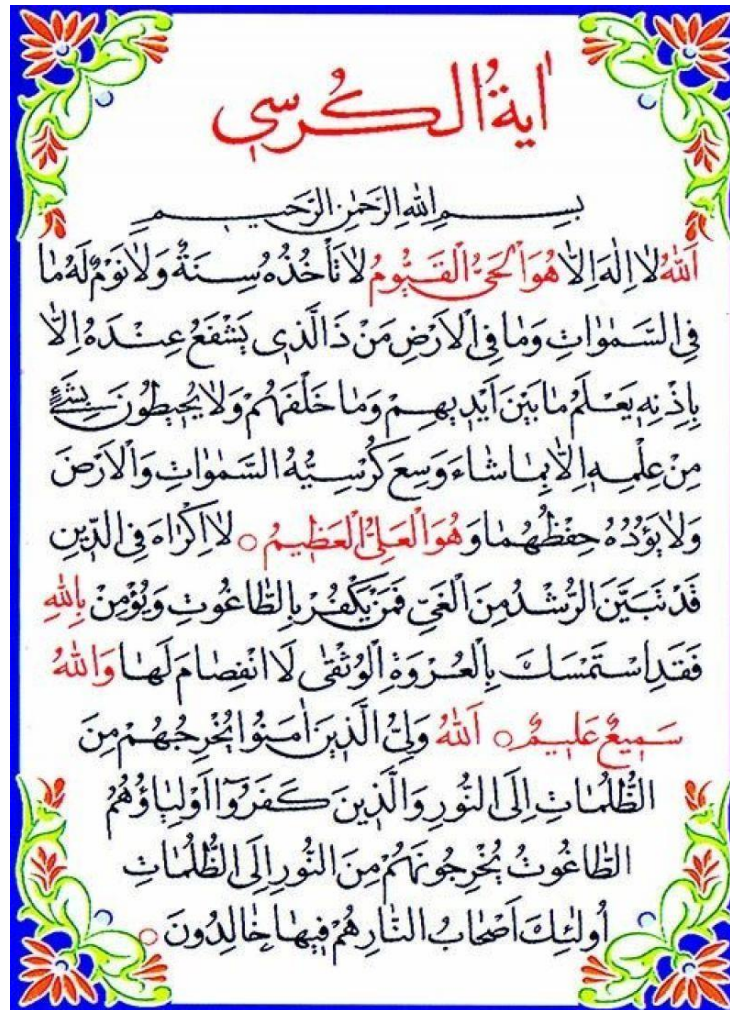 اٰيةُ الكُرسي
بِسْمِ اللّٰهِ الرَّحْمٰنِ الرَّحيمِ
اَللّٰهُ لَا اِلٰهَ اِلَّا هُوَ الْحَيُّ الْقَيُّومُ لَا تَأْخُذُهُ سِنَةٌ وَلَا نَوْمٌ لَهُ مَا
فِي السَّمٰوَاتِ وَمَا فِي الْاَرْضِ مَنْ ذَا الَّذي يَشْفَعُ عِنْدَهُ اِلَّا
بِاِذْنِهِ يَعْلَمُ مَا بَيْنَ اَيْديهِمْ وَمَا خَلْفَهُمْ وَلَا يُحيطُونَ بِشَيْءٍ
مِنْ عِلْمِهِ اِلَّا بِمَا شَاءَ وَسِعَ كُرْسِيُّهُ السَّمٰوَاتِ وَالْاَرْضَ
وَلَا يَؤُدُهُ حِفْظُهُمَا وَهُوَ الْعَلِيُّ الْعَظيمُ ۝ لَا اِكْرَاهَ فِي الدّينِ
قَدْ تَبَيَّنَ الرُّشْدُ مِنَ الْغَيِّ فَمَنْ يَكْفُرْ بِالطَّاغُوتِ وَيُؤْمِنْ بِاللّٰهِ
فَقَدِ اسْتَمْسَكَ بِالْعُرْوَةِ الْوُثْقٰى لَا انْفِصَامَ لَهَا وَاللّٰهُ
سَميعٌ عَليمٌ ۝ اَللّٰهُ وَلِيُّ الَّذينَ اٰمَنُوا يُخْرِجُهُمْ مِنَ
الظُّلُمَاتِ اِلَى النُّورِ وَالَّذينَ كَفَرُوا اَوْلِيَاؤُهُمُ
الطَّاغُوتُ يُخْرِجُونَهُمْ مِنَ النُّورِ اِلَى الظُّلُمَاتِ
اُولٰئِكَ اَصْحَابُ النَّارِ هُمْ فيهَا خَالِدُونَ ۝